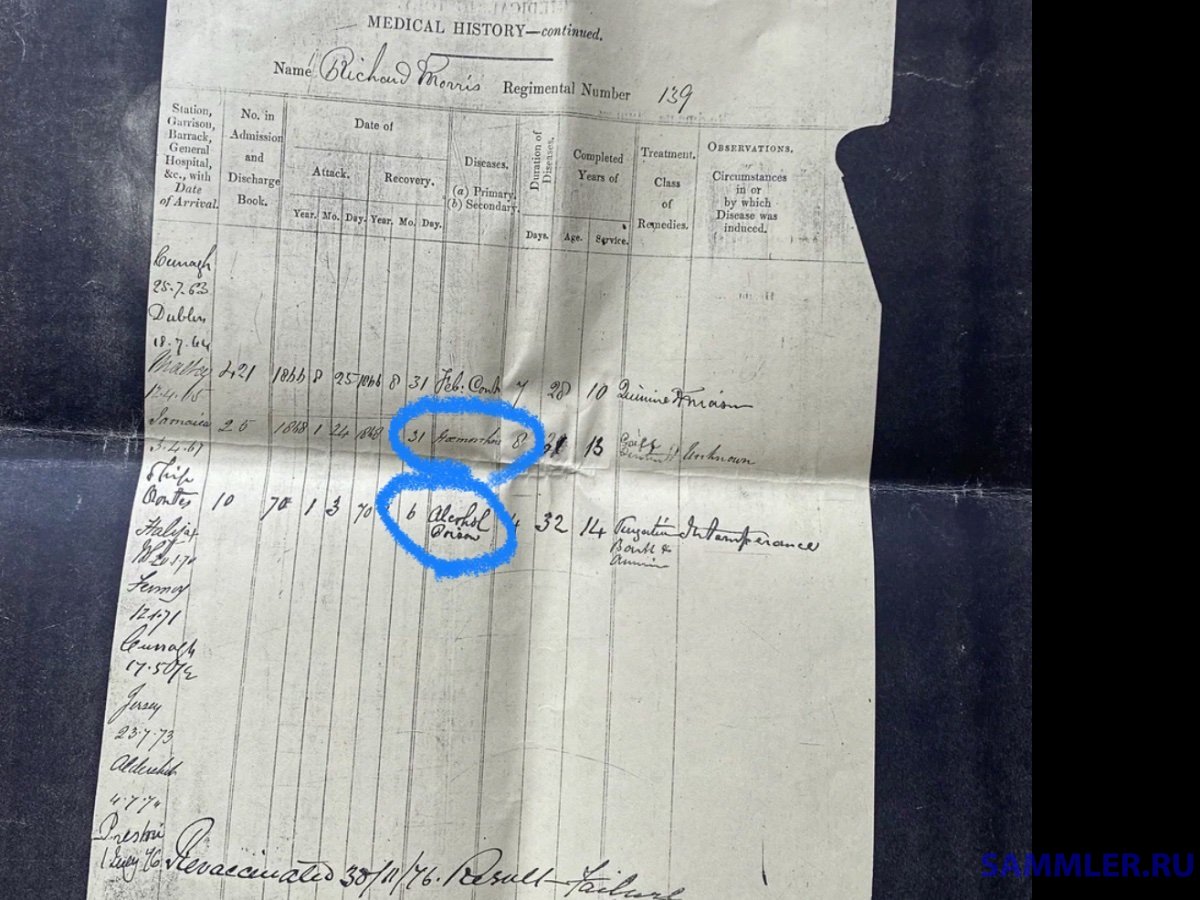 MEDICAL HISTORY—continued.
Name Richard Morris Regimental Number 139
Station,
Garrison,
Barrack,
General
Hospital,
&c., with
Date
of Arrival.
No. in
Admission
and
Discharge
Book.
Date of
Attack.
Recovery.
Year. Mo. Day. Year. Mo. Day.
Diseases.
(a) Primary.
(b) Secondary.
Duration of
Diseases.
Days.
Completed
Years of
Age. Service.
Treatment.
Class
of
Remedies.
OBSERVATIONS.
Circumstances
in or
by which
Disease was
induced.
Curragh
25.7.63
Dublin
18.7.64
Malta 421 1866 8 25 1866 8 31 Feb: Cont 7 28 10 Quinine
12.4.65
Jamaica 25 1868 1 24 1868 31 8 13 Unknown
3.4.67
Ship
10 70 1 3 70 6 Alcohol 4 32 14 Intemperance
Poison
Halifax
Fermoy
Curragh
Jersey
23.7.73
Aldershot
4.7.74
Preston
Revaccinated 30/11/76. Result Failure
SAMMLER.RU